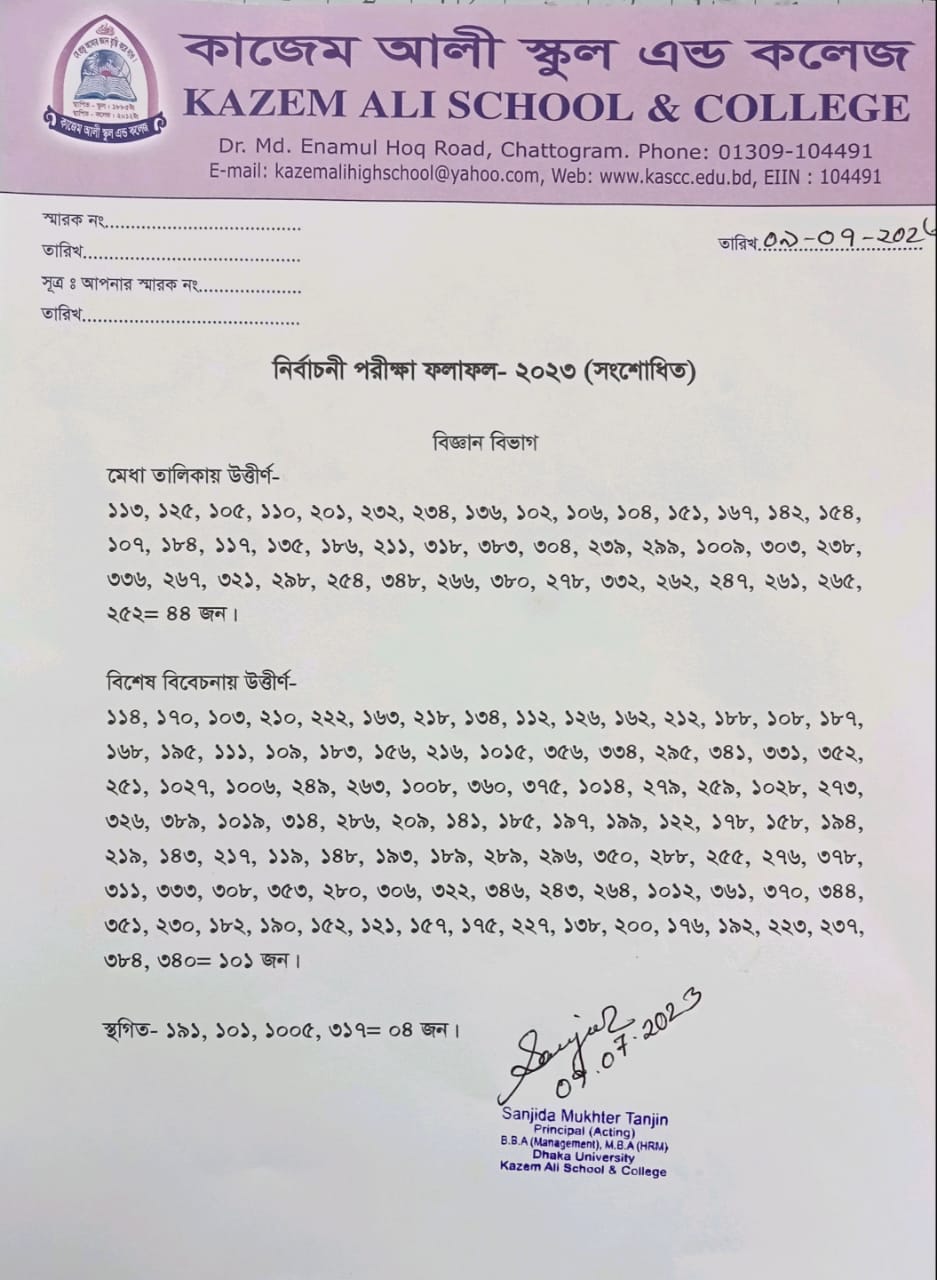 কাজেম আলী স্কুল এন্ড কলেজ
KAZEM ALI SCHOOL & COLLEGE
Dr. Md. Enamul Hoq Road, Chattogram. Phone: 01309-104491
E-mail: kazemalihighschool@yahoo.com, Web: www.kascc.edu.bd, EIIN : 104491
স্থাপিত - স্কুল : ১৮৮৫ইং
স্থাপিত - কলেজ : ২০১২ইং
কাজেম আলী স্কুল এন্ড কলেজ
স্মারক নং
তারিখ
সূত্র ঃ আপনার স্মারক নং
তারিখ
তারিখ ০৯-০৭-২০২
নির্বাচনী পরীক্ষা ফলাফল- ২০২৩ (সংশোধিত)
বিজ্ঞান বিভাগ
মেধা তালিকায় উত্তীর্ণ-
১১৩, ১২৫, ১০৫, ১১০, ২০১, ২৩২, ২৩৪, ১৩৬, ১০২, ১০৬, ১০৪, ১৫১, ১৬৭, ১৪২, ১৫৪,
১০৭, ১৮৪, ১১৭, ১৩৫, ১৮৬, ২১১, ৩১৮, ৩৮৩, ৩০৪, ২৩৯, ২৯৯, ১০০৯, ৩০৩, ২৩৮,
৩৩৬, ২৬৭, ৩২১, ২৯৮, ২৫৪, ৩৪৮, ২৬৬, ৩৮০, ২৭৮, ৩৩২, ২৬২, ২৪৭, ২৬১, ২৬৫,
২৫২= ৪৪ জন।
বিশেষ বিবেচনায় উত্তীর্ণ-
১১৪, ১৭০, ১০৩, ২১০, ২২২, ১৬৩, ২১৮, ১৩৪, ১১২, ১২৬, ১৬২, ২১২, ১৮৮, ১০৮, ১৮৭,
১৬৮, ১৯৫, ১১১, ১০৯, ১৮৩, ১৫৬, ২১৬, ১০১৫, ৩৫৬, ৩৩৪, ২৯৫, ৩৪১, ৩৩১, ৩৫২,
২৫১, ১০২৭, ১০০৬, ২৪৯, ২৬৩, ১০০৮, ৩৬০, ৩৭৫, ১০১৪, ২৭৯, ২৫৯, ১০২৮, ২৭৩,
৩২৬, ৩৮৯, ১০১৯, ৩১৪, ২৮৬, ২০৯, ১৪১, ১৮৫, ১৯৭, ১৯৯, ১২২, ১৭৮, ১৫৮, ১৯৪,
২১৯, ১৪৩, ২১৭, ১১৯, ১৪৮, ১৯৩, ১৮৯, ২৮৯, ২৯৬, ৩৫০, ২৮৮, ২৫৫, ২৭৬, ৩৭৮,
৩১১, ৩৩৩, ৩০৮, ৩৫৩, ২৮০, ৩০৬, ৩২২, ৩৪৬, ২৪৩, ২৬৪, ১০১২, ৩৬১, ৩৭০, ৩৪৪,
৩৫১, ২৩০, ১৮২, ১৯০, ১৫২, ১২১, ১৫৭, ১৭৫, ২২৭, ১৩৮, ২০০, ১৭৬, ১৯২, ২২৩, ২৩৭,
৩৮৪, ৩৪০= ১০১ জন।
স্থগিত- ১৯১, ১০১, ১০০৫, ৩১৭= ০৪ জন।
09.07.2023
Sanjida Mukhter Tanjin
Principal (Acting)
B.B.A (Management), M.B.A (HRM)
Dhaka University
Kazem Ali School & College